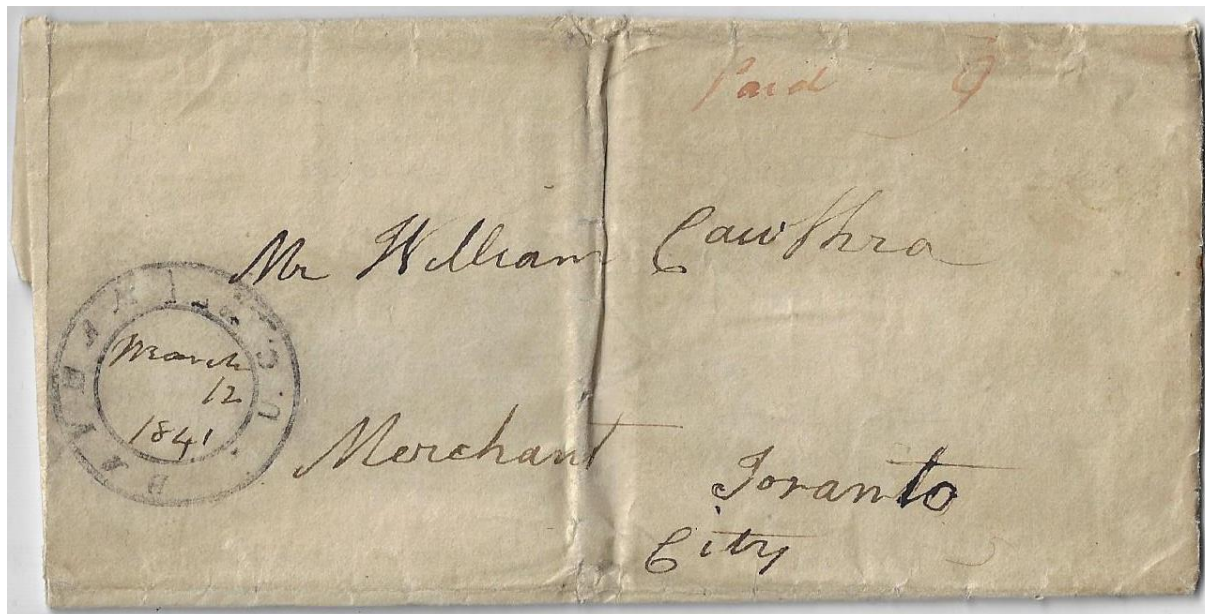 Paid 9
Mr William Cawthra
BAYHAM U.C.
March
12
1841
Merchant
Toranto
City